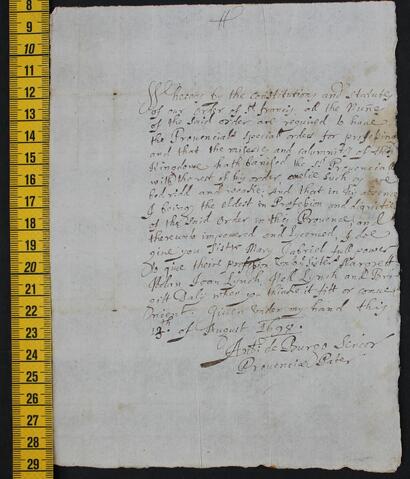 8
9
10
11
12
13
14
15
16
17
18
19
20
21
22
23
24
25
26
27
28
29
Whereas by the constitutions and statutes
of our order of St francis all the Nuns
of the said order are required to have
the Provincials special order for profession
and that the miseries and calamities of this
Kingdome hath banished the Provincial
with the rest of his order onelie such as were
bedridd and weake. And that in his absence
I being the eldest in Profession and dignitie
of the said Order in this Province and
thereunto impowered and Licenced, I doe
give you Sister Mary Gabriel full power
to give theire profession unto Sister Margrett
Nolan Joan Lynch, Lynch and Bri
gitt Daly when you thinke it fitt or conve
nient. Given under my hand this
13th of August 1698.
Antt de Burgo Senior
Provenciae Pater